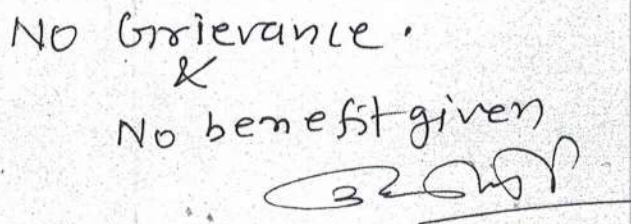 No Grievance.
&
No benefit given